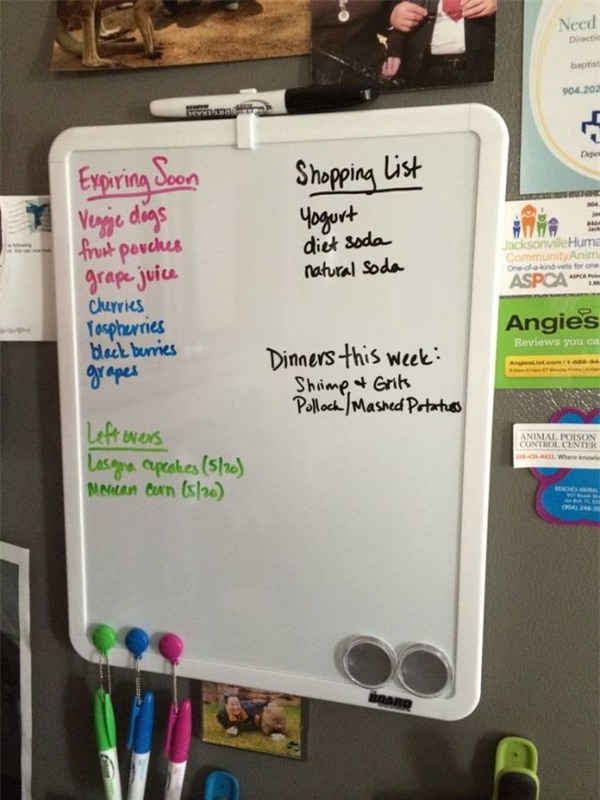 Expiring Soon
Veggie dogs
fruit pouches
grape juice
cherries
raspberries
blackberries
grapes
Leftovers
Lasgna cupcakes (5/20)
Mexican corn (5/20)
Shopping List
Yogurt
diet soda
natural soda
Dinners this week:
Shrimp & Grits
Pollock/Mashed Potatoes
THE BOARD
Need
Directi
baptist
904.202
Jacksonville Huma
Community Anim
One-of-a-kind-vets for one
ASPCA
Angie's
Reviews you ca
AngiesList.com | 1-888-94
ANIMAL POISON
CONTROL CENTER
888-426-4435.
BEACHES ANIMAL
(904) 246-20